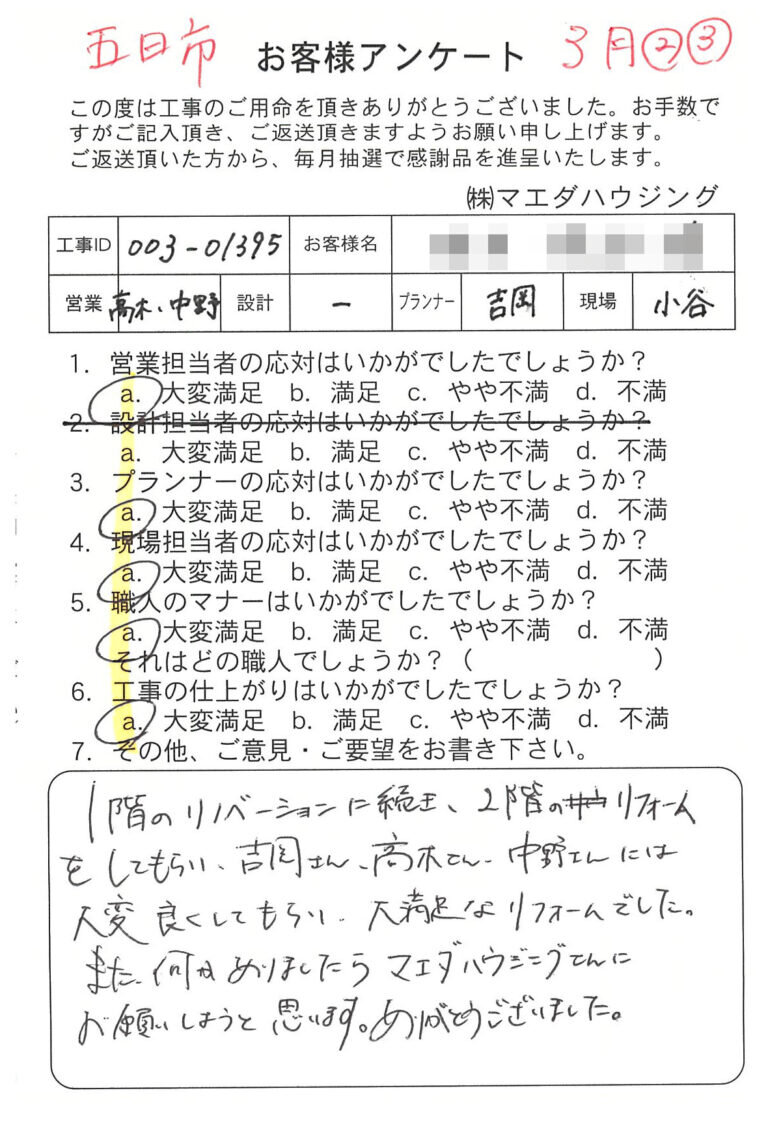 五日市 お客様アンケート 3月②③
この度は工事のご用命を頂きありがとうございました。お手数で
すがご記入頂き、ご返送頂きますようお願い申し上げます。
ご返送頂いた方から、毎月抽選で感謝品を進呈いたします。
㈱マエダハウジング
工事ID 003-01395 お客様名
営業 高木、中野 設計 ー プランナー 吉岡 現場 小谷
1. 営業担当者の応対はいかがでしたでしょうか？
a. 大変満足 b. 満足 c. やや不満 d. 不満
2. 設計担当者の応対はいかがでしたでしょうか？
a. 大変満足 b. 満足 c. やや不満 d. 不満
3. プランナーの応対はいかがでしたでしょうか？
a. 大変満足 b. 満足 c. やや不満 d. 不満
4. 現場担当者の応対はいかがでしたでしょうか？
a. 大変満足 b. 満足 c. やや不満 d. 不満
5. 職人のマナーはいかがでしたでしょうか？
a. 大変満足 b. 満足 c. やや不満 d. 不満
それはどの職人でしょうか？（ ）
6. 工事の仕上がりはいかがでしたでしょうか？
a. 大変満足 b. 満足 c. やや不満 d. 不満
7. その他、ご意見・ご要望をお書き下さい。
1階のリノベーションに続き、2階のリフォーム
をしてもらい、吉岡さん、高木さん、中野さんには
大変良くしてもらい、大満足なリフォームでした。
また、何かありましたらマエダハウジングさんに
お願いしようと思います。ありがとうございました。